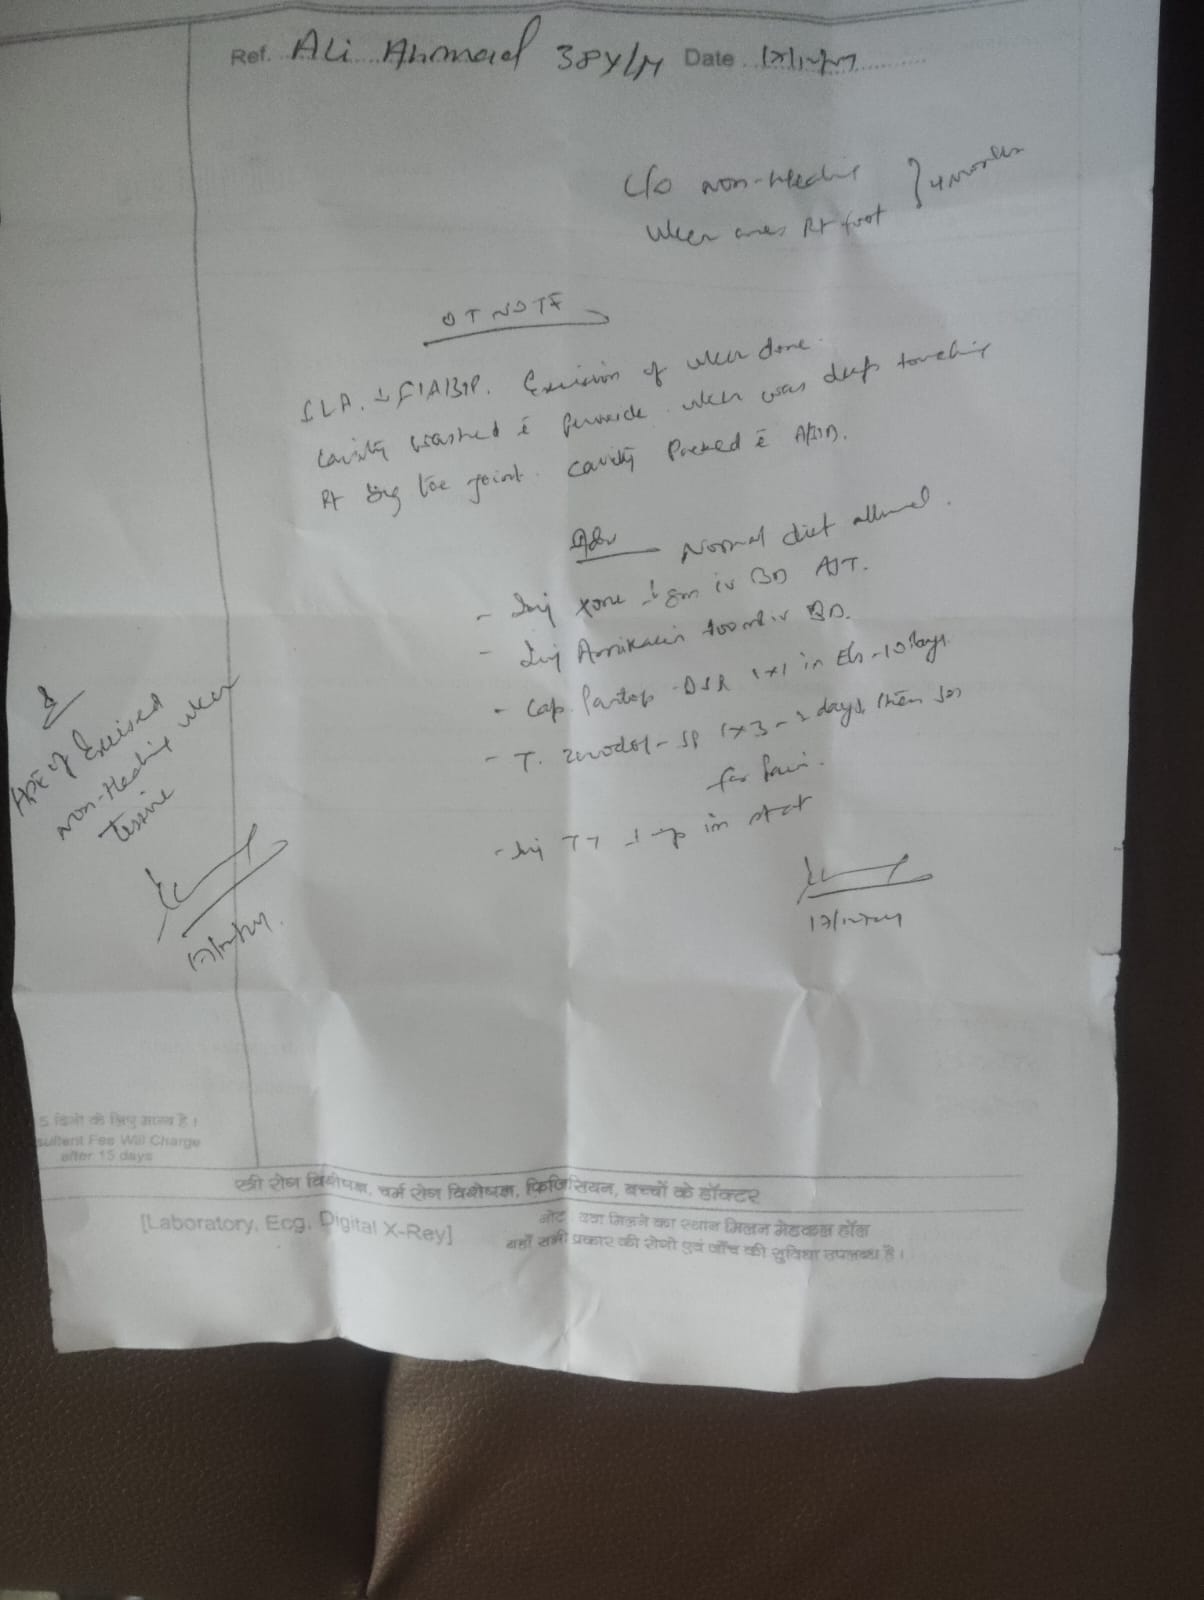 Ref. Ali Ahmad 38Y/M Date
C/o non-Healing } 4 months
ulcer over Rt foot
OT NOTE
Excision of ulcer done.
cavity washed c̄ ulcer was deep touching
Rt big toe joint. cavity Packed c̄
Adv Normal diet allowed.
- Inj xone 1gm iv BD AST.
- Inj Amikacin iv BD.
- Cap. Pantop-DSR 1x1 in E/s - 10 days.
- T. Zerodol-SP 1x3 - days, then sos
for pain.
- Inj TT im stat
17/12/24
HPE of Excised
non-Healing ulcer
tissue
17/12/24.
5 दिनों के लिए मान्य है।
sultent Fee Will Charge
after 15 days
स्त्री रोग विशेषज्ञ, चर्म रोग विशेषज्ञ, फिजिसियन, बच्चों के डॉक्टर
[Laboratory, Ecg, Digital X-Rey]
नोट : दवा मिलने का स्थान मिलन मेडिकल हॉल
यहाँ सभी प्रकार की रोगो एवं जाँच की सुविधा उपलब्ध है।